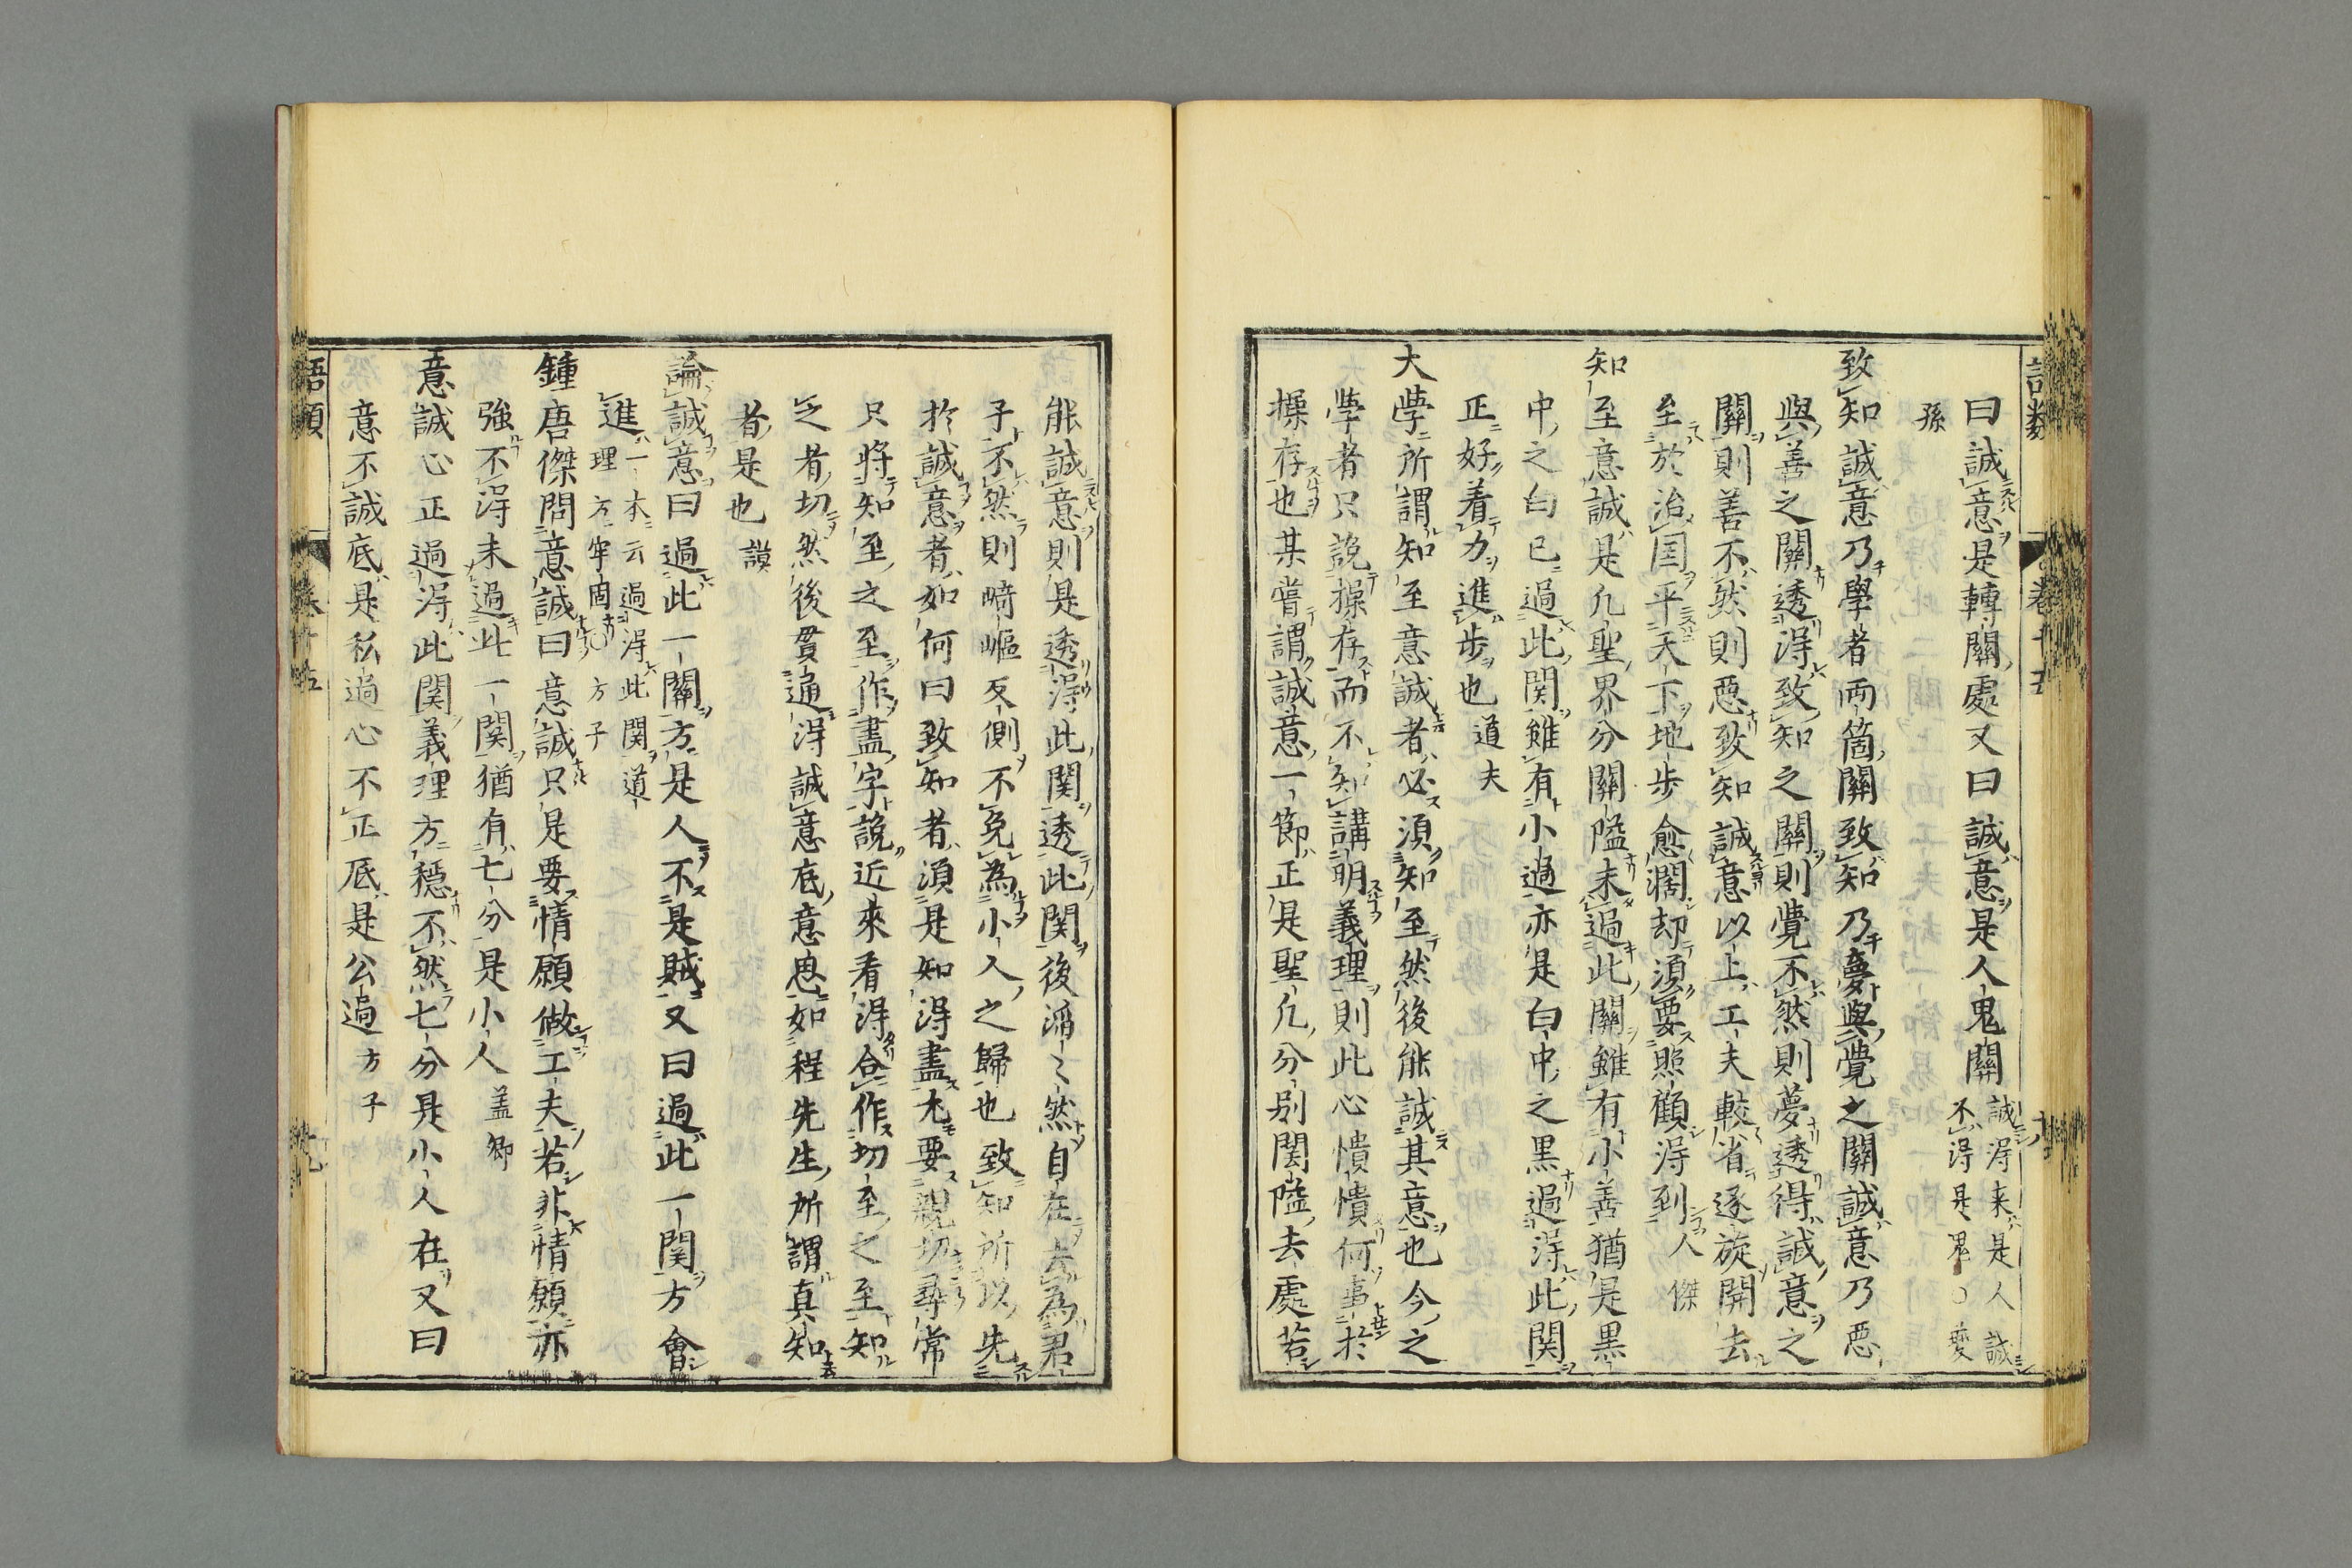 語類 卷十五
曰誠意是轉關處又曰誠意是人鬼關 誠得来是人誠不得是鬼○夔
孫
致知誠意乃學者兩箇關致知乃夢與覺之關誠意乃惡
與善之關透得致知之關則覺不然則夢透得誠意之
關則善不然則惡致知誠意以上工夫較省逐旋開去
至於治国平天下地歩愈濶却須要照顧得到人傑
知至意誠是凡聖界分關隘未過此關雖有小善猶是黒
中之白已過此関雖有小過亦是白中之黒過得此関
正好着力進歩也道夫
大學所謂知至意誠者必須知至然後能誠其意也今之
學者只說操存而不知講明義理則此心憒憒何事於
操存也某嘗謂誠意一節正是聖凡分別関隘去處若
能誠意則是透得此関透此関後滔〻然自在去為君
子不然則崎嶇反側不免為小人之歸也致知所以先
於誠意者如何曰致知者須是知得盡尤要親切尋常
只將知至之至作盡字說近來看得合作切至之至知
之者切然後貫通得誠意底意思如程先生所謂真知
者是也謨
論誠意曰過此一關方是人不是賊又曰過此一関方會
進 一本云過得此関道理方牢固○方子
鍾唐傑問意誠曰意誠只是要情願做工夫若非情願亦
強不得未過此一関猶有七分是小人 盖卿
意誠心正過得此関義理方穏不然七分是小人在又曰
意不誠底是私過心不正底是公過 方子
語類 卷十五